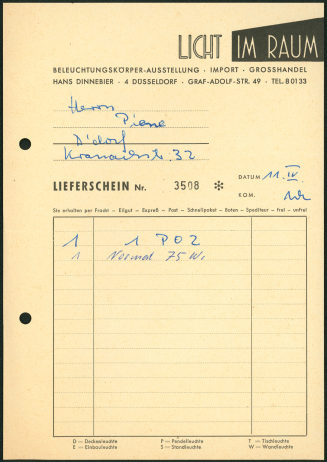 LICHT IM RAUM
BELEUCHTUNGSKÖRPER-AUSSTELLUNG · IMPORT · GROSSHANDEL
HANS DINNEBIER · 4 DÜSSELDORF · GRAF-ADOLF-STR. 49 · TEL. 80133
Herrn
Piene
D'dorf
Kranachstr. 32
LIEFERSCHEIN Nr. 3508 *
DATUM 11. IV.
KOM.
Sie erhalten per Fracht – Eilgut – Expreß – Post – Schnellpaket – Boten – Spediteur – frei – unfrei
1 1 PO2
1 Normal 75 W
D = Deckenleuchte P = Pendelleuchte T = Tischleuchte
E = Einbauleuchte S = Standleuchte W = Wandleuchte